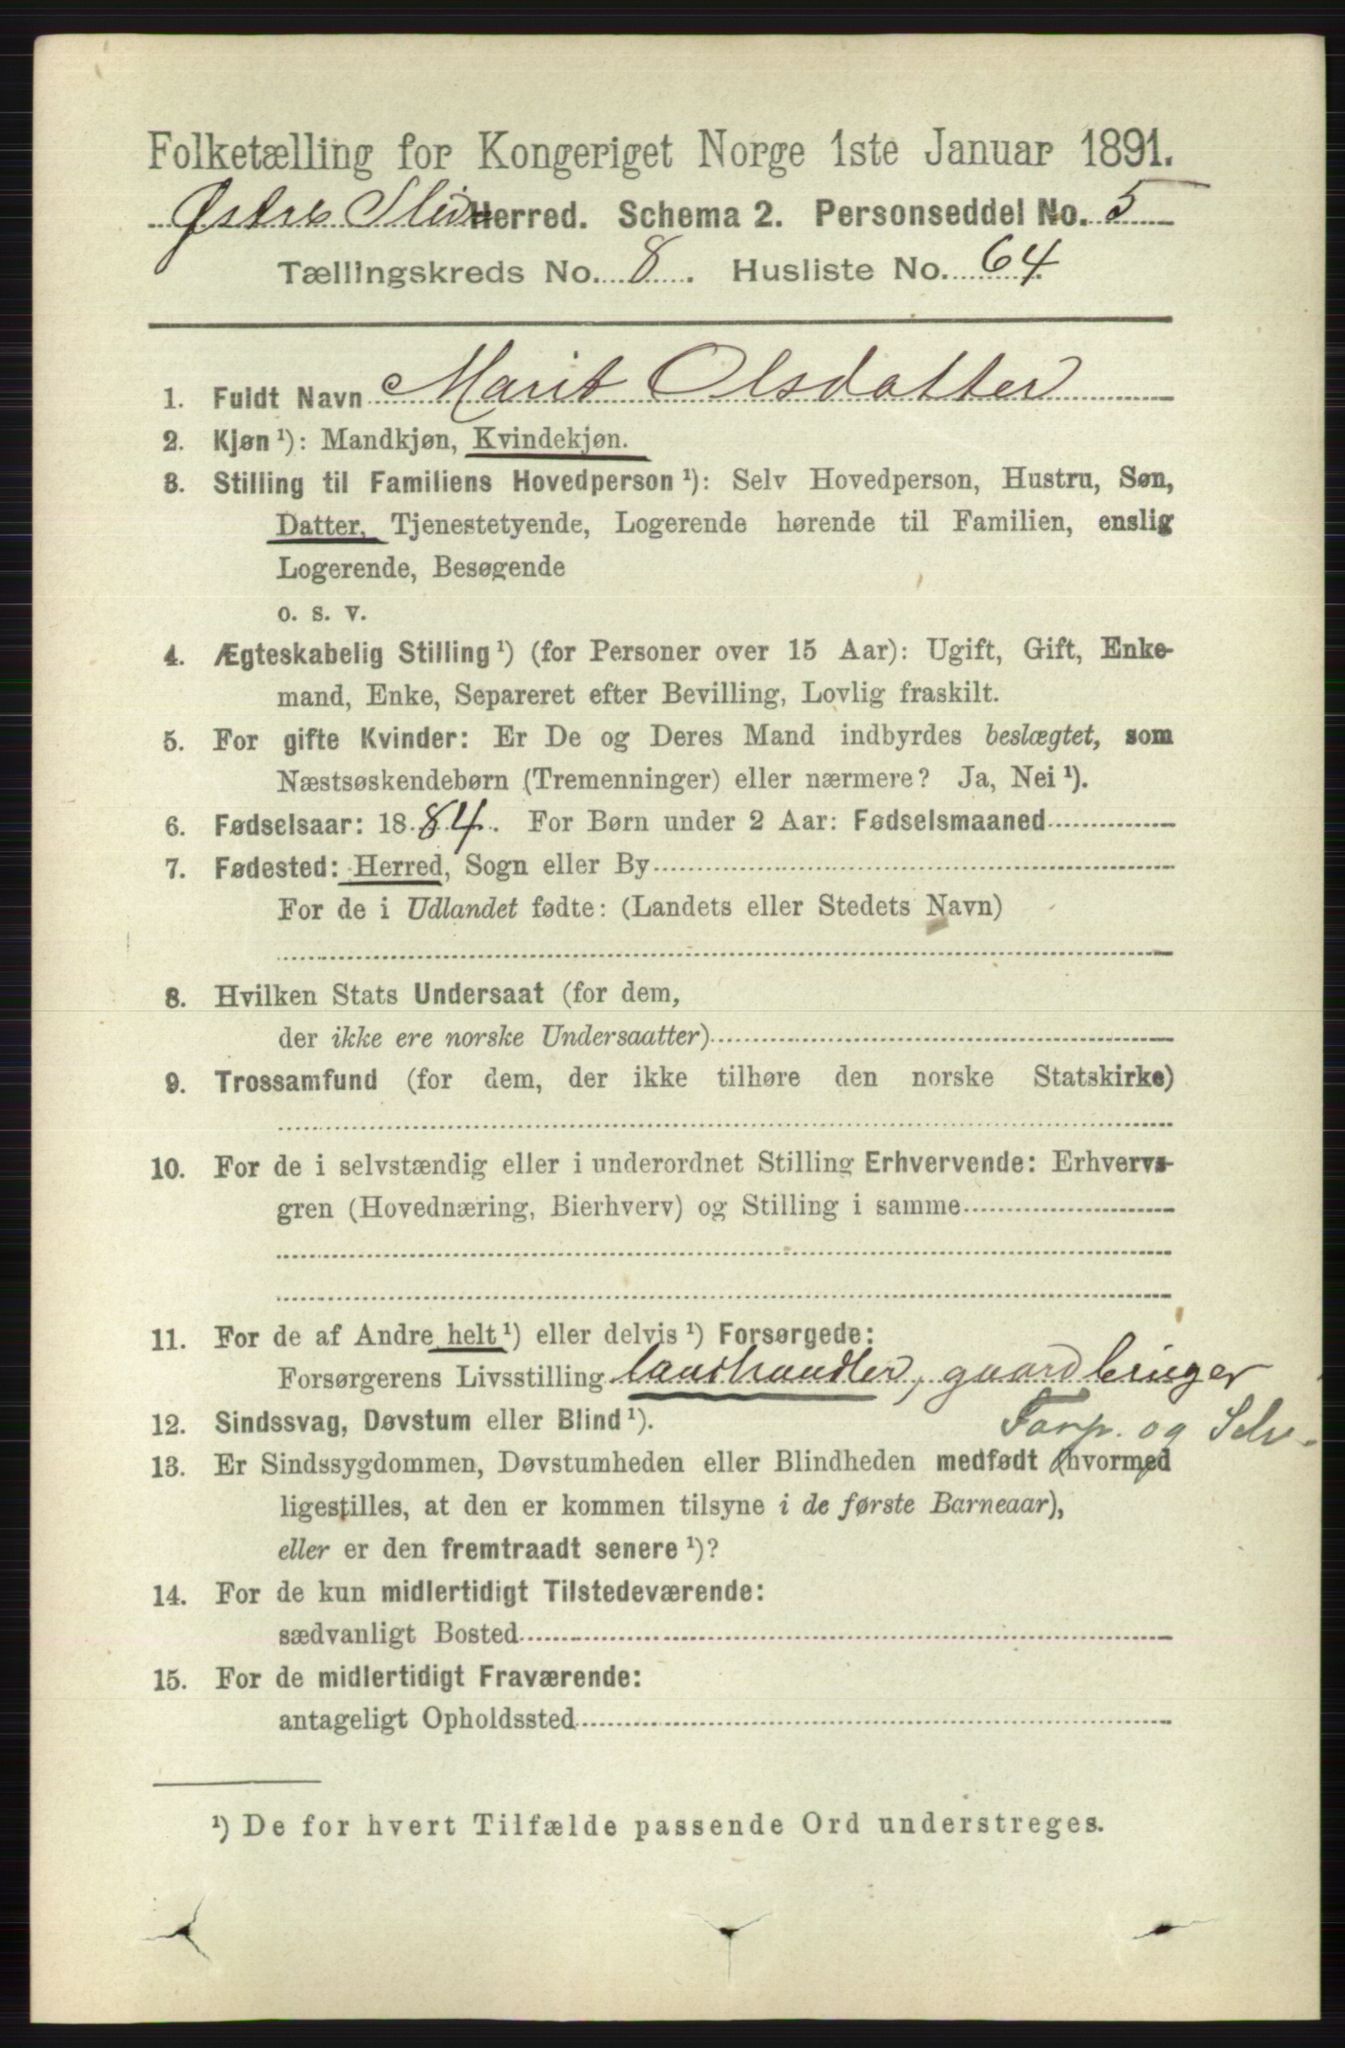 Folketælling for Kongeriget Norge 1ste Januar 1891.
Østre Slidre Herred. Schema 2. Personseddel No. 5
Tællingskreds No. 8. Husliste No. 64
1. Fuldt Navn Marit Olsdatter
2. Kjøn ¹): Mandkjøn, Kvindekjøn.
3. Stilling til Familiens Hovedperson ¹): Selv Hovedperson, Hustru, Søn,
Datter, Tjenestetyende, Logerende hørende til Familien, enslig
Logerende, Besøgende
o. s. v.
4. Ægteskabelig Stilling ¹) (for Personer over 15 Aar): Ugift, Gift, Enke-
mand, Enke, Separeret efter Bevilling, Lovlig fraskilt.
5. For gifte Kvinder: Er De og Deres Mand indbyrdes beslægtet, som
Næstsøskendebørn (Tremenninger) eller nærmere? Ja, Nei ¹).
6. Fødselsaar: 1884. For Børn under 2 Aar: Fødselsmaaned
7. Fødested: Herred, Sogn eller By
For de i Udlandet fødte: (Landets eller Stedets Navn)
8. Hvilken Stats Undersaat (for dem,
der ikke ere norske Undersaatter)
9. Trossamfund (for dem, der ikke tilhøre den norske Statskirke)
10. For de i selvstændig eller i underordnet Stilling Erhvervende: Erhvervs-
gren (Hovednæring, Bierhverv) og Stilling i samme
11. For de af Andre helt ¹) eller delvis ¹) Forsørgede:
Forsørgerens Livsstilling landhandler, gaardbruger
Forp. og Selv-
12. Sindssvag, Døvstum eller Blind ¹).
13. Er Sindssygdommen, Døvstumheden eller Blindheden medfødt (hvormed
ligestilles, at den er kommen tilsyne i de første Barneaar),
eller er den fremtraadt senere ¹)?
14. For de kun midlertidigt Tilstedeværende:
sædvanligt Bosted
15. For de midlertidigt Fraværende:
antageligt Opholdssted
¹) De for hvert Tilfælde passende Ord understreges.